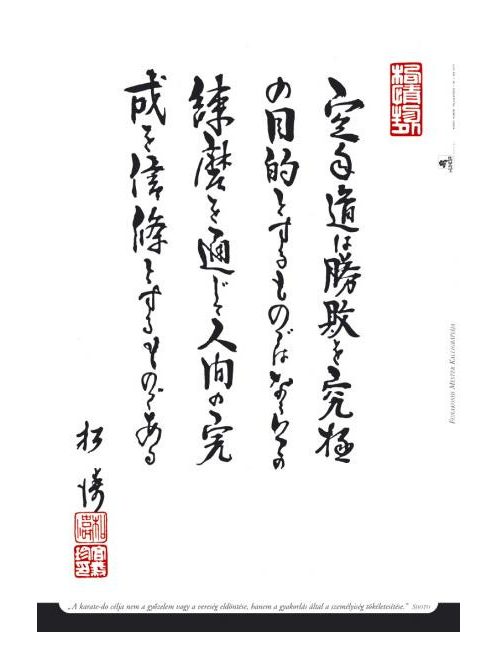 空手道は勝敗を究極
の目的とするものではなく の
練磨を通じて人間の完
成を信條とするものである
松濤
FUNAKOSHI MESTER KALLIGRÁFIÁJA
„A karate-do célja nem a győzelem vagy a vereség eldöntése, hanem a gyakorlás által a személyiség tökéletesítése.” SHOTO